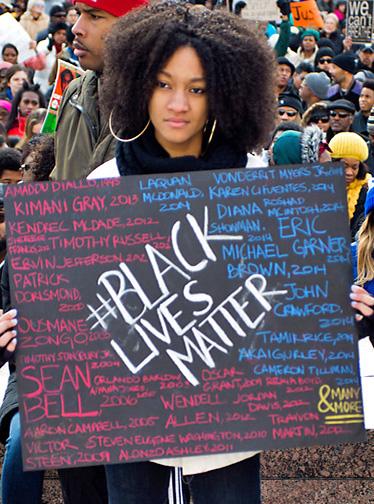 Jus
we
can't
BREATHE
AMADOU DIALLO, 1999
KIMANI GRAY, 2013
KENDREC McDADE, 2012
TIMOTHY RUSSELL,
ERVIN JEFFERSON, 2012
PATRICK
DORISMOND,
2000
OUSMANE
ZONGO
2003
TIMOTHY STANSBURY, JR.
2004
SEAN
BELL,
2006
ORLANDO BARLOW
AARON CAMPBELL,
VICTOR
STEEN, 2009
STEVEN EUGENE WASHINGTON, 2010
ALONZO ASHLEY, 2011
WENDELL
ALLEN, 2012
OSCAR
GRANT, 2009
REKIA BOYD
JORDAN
DAVIS, 2012
TRAYVON
MARTIN,
LAQUAN
McDONALD,
2014
VONDERRIT MYERS JR.
KAREN CIFUENTES, 2014
DIANA
SHOWMAN,
2014
ROSHAD
McINTOSH, 2014
ERIC
GARNER,
MICHAEL
BROWN, 2014
JOHN
CRAWFORD,
2014
TAMIR RICE, 2014
AKAI GURLEY, 2014
CAMERON TILLMAN,
2014
& MANY
MORE
#BLACK
LIVES
MATTER